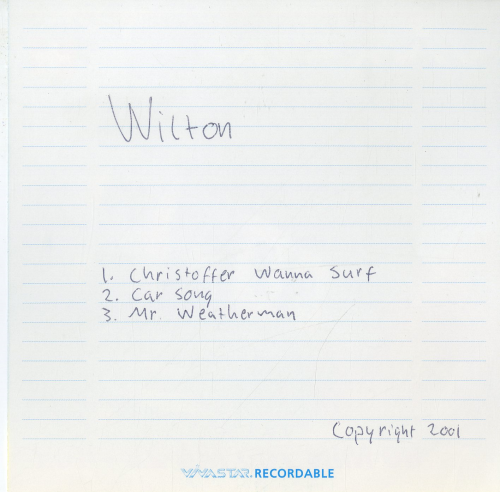 Wilton
1. Christoffer Wanna Surf
2. Car Song
3. Mr. Weatherman
Copyright 2001
VIVASTAR. RECORDABLE